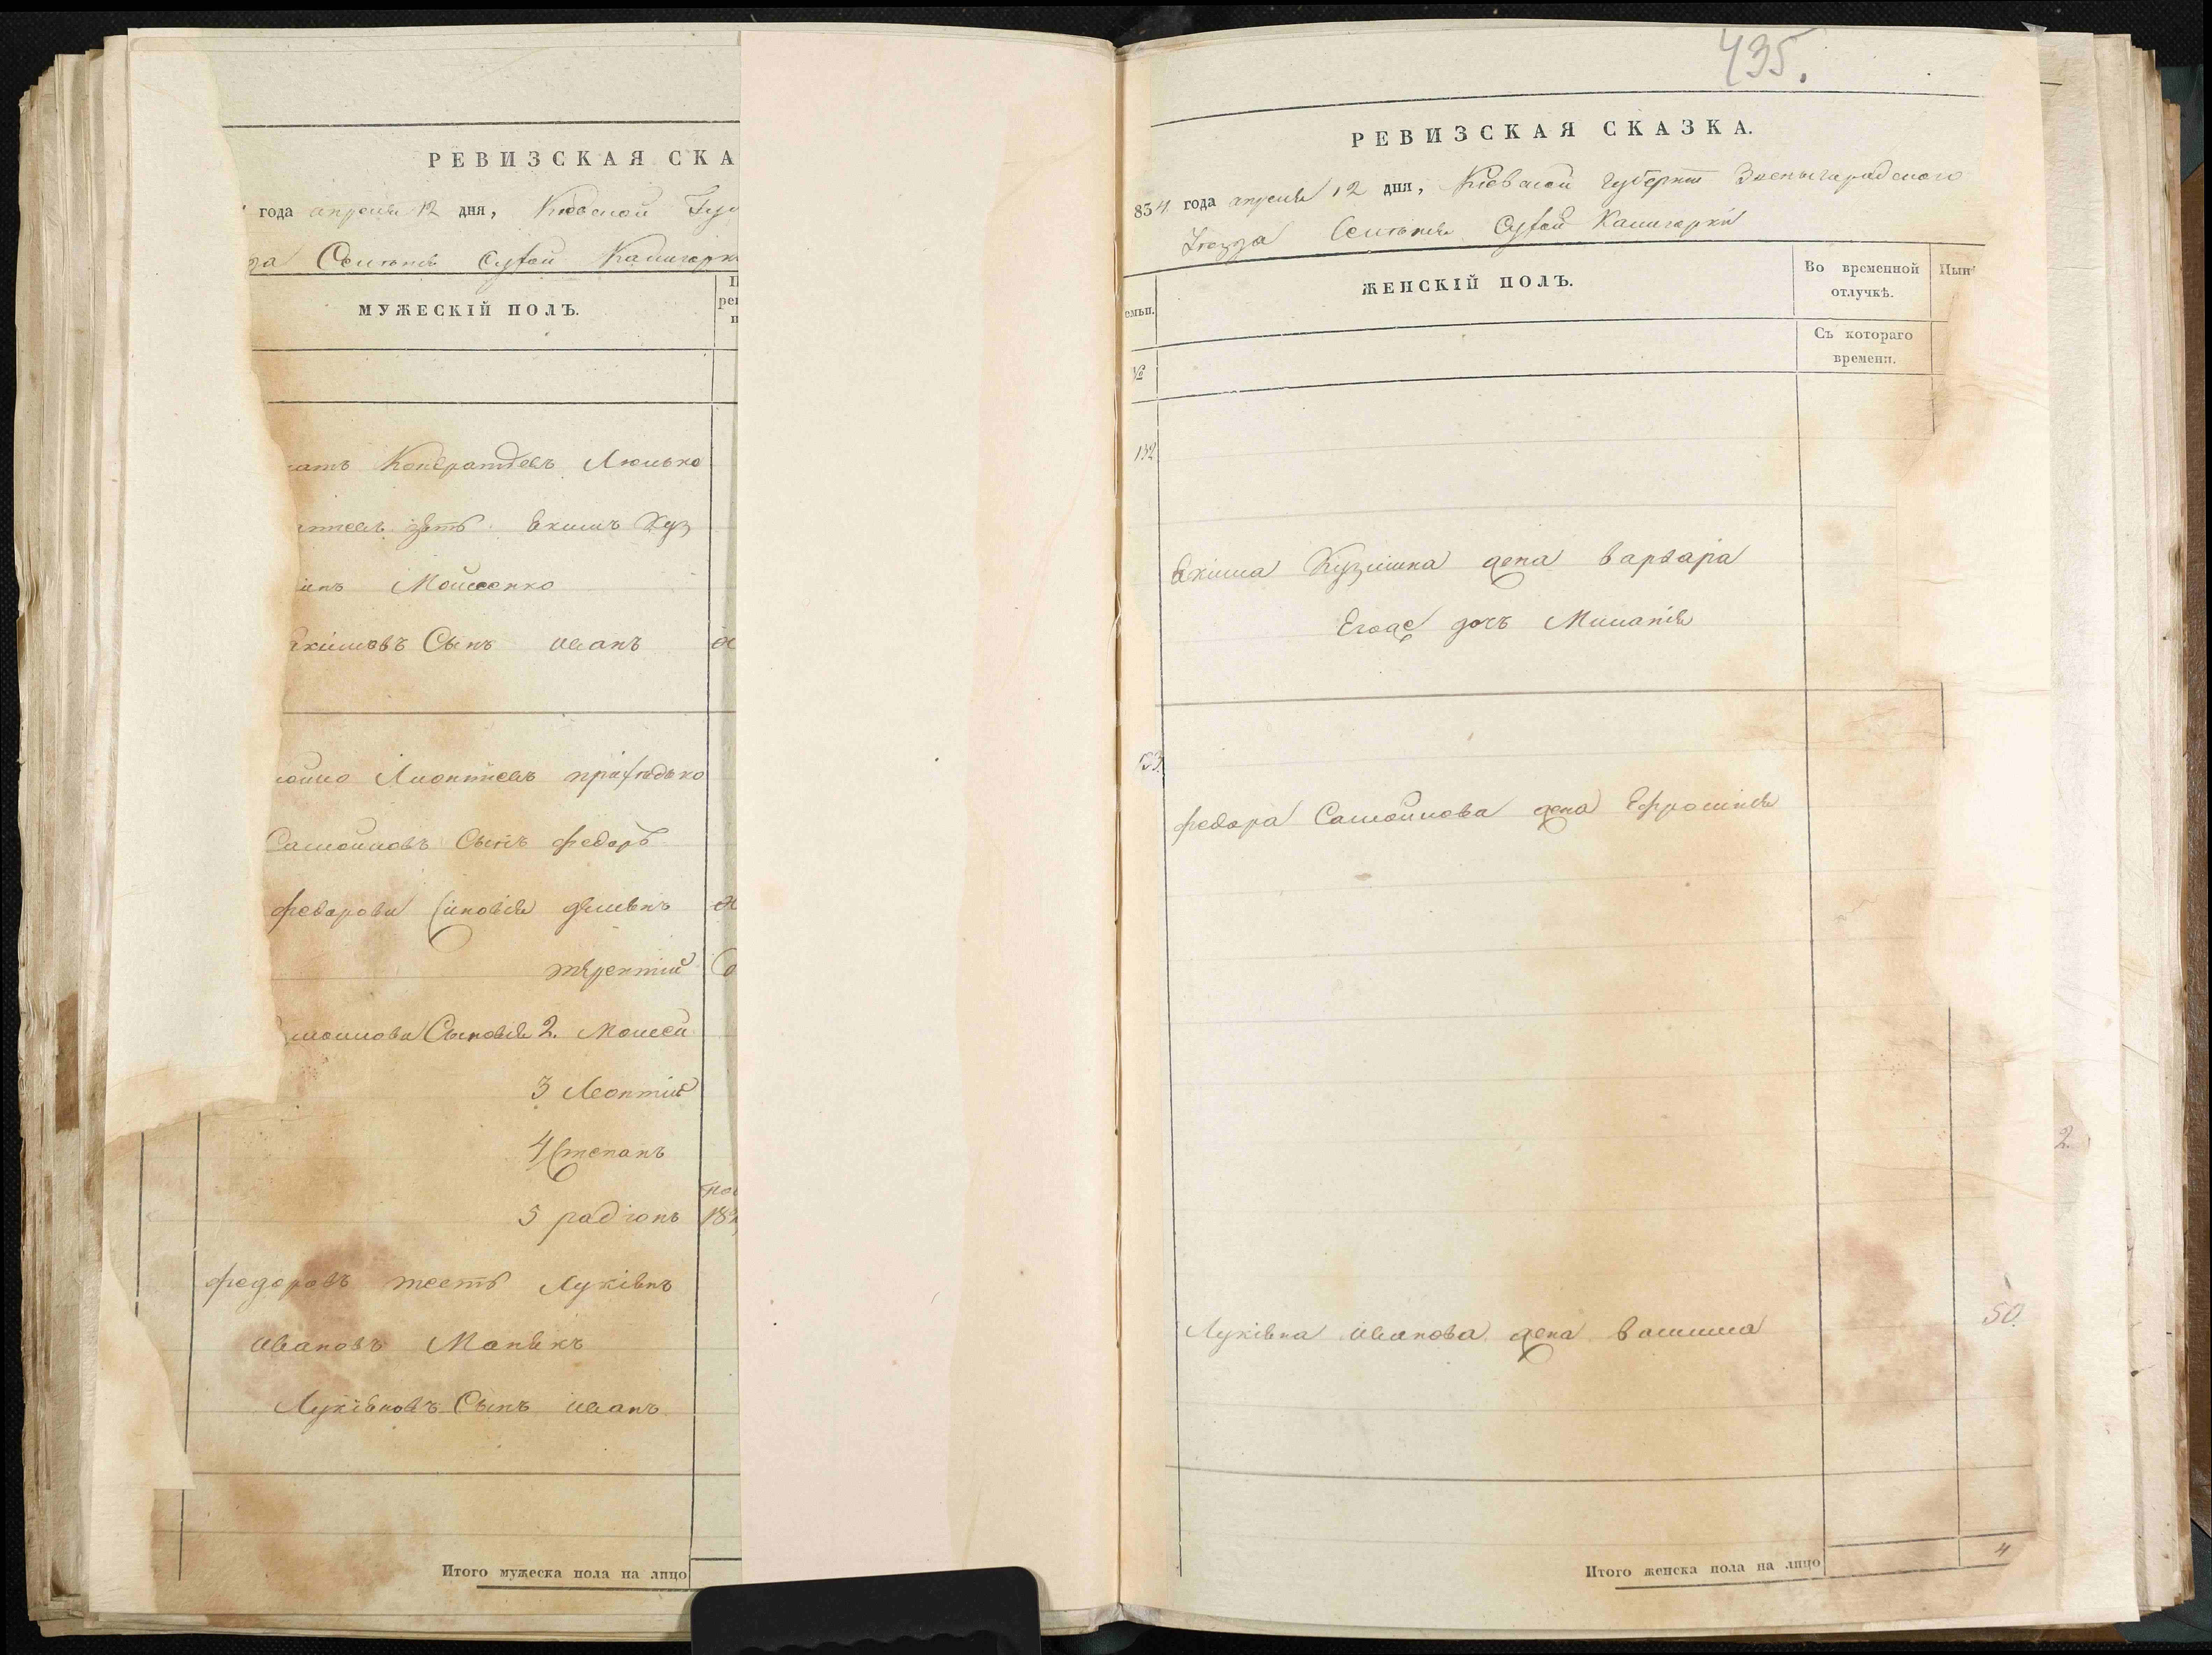 РЕВИЗСКАЯ СКА
года апреля 12 дня, Киевской Гу
да Селѣнія Сухой Калигорки
МУЖЕСКІЙ ПОЛЪ.
Кондратіевъ Люлько
зять Екимъ Куз
Моисеенко
Екимовъ Сынъ иванъ
Леонтіевъ
Самойловъ Сынъ федоръ
федорови Синовія демянъ
терентий
Сыновія 2. Моисей
3 Леонтий
4 Степанъ
5 радіонъ
федоровъ тесть Лукіянъ
ивановъ
Лукіяновъ Сынъ иванъ
Итого мужеска пола на лицо
435.
РЕВИЗСКАЯ СКАЗКА.
834 года апреля 12 дня, Киевской губернии Звенигородского
Уезда Селѣнія Сухой Калигорки
ЖЕНСКІЙ ПОЛЪ.
Во временной
отлучкѣ.
Нын
емьи.
Съ котораго
времени.
№
132
Екима Кузмина жена варвара
Егоже дочь Миланія
133
федора Самойлова жена Ефросинія
2.
Лукіяна иванова жена
50.
Итого женска пола на лицо
4